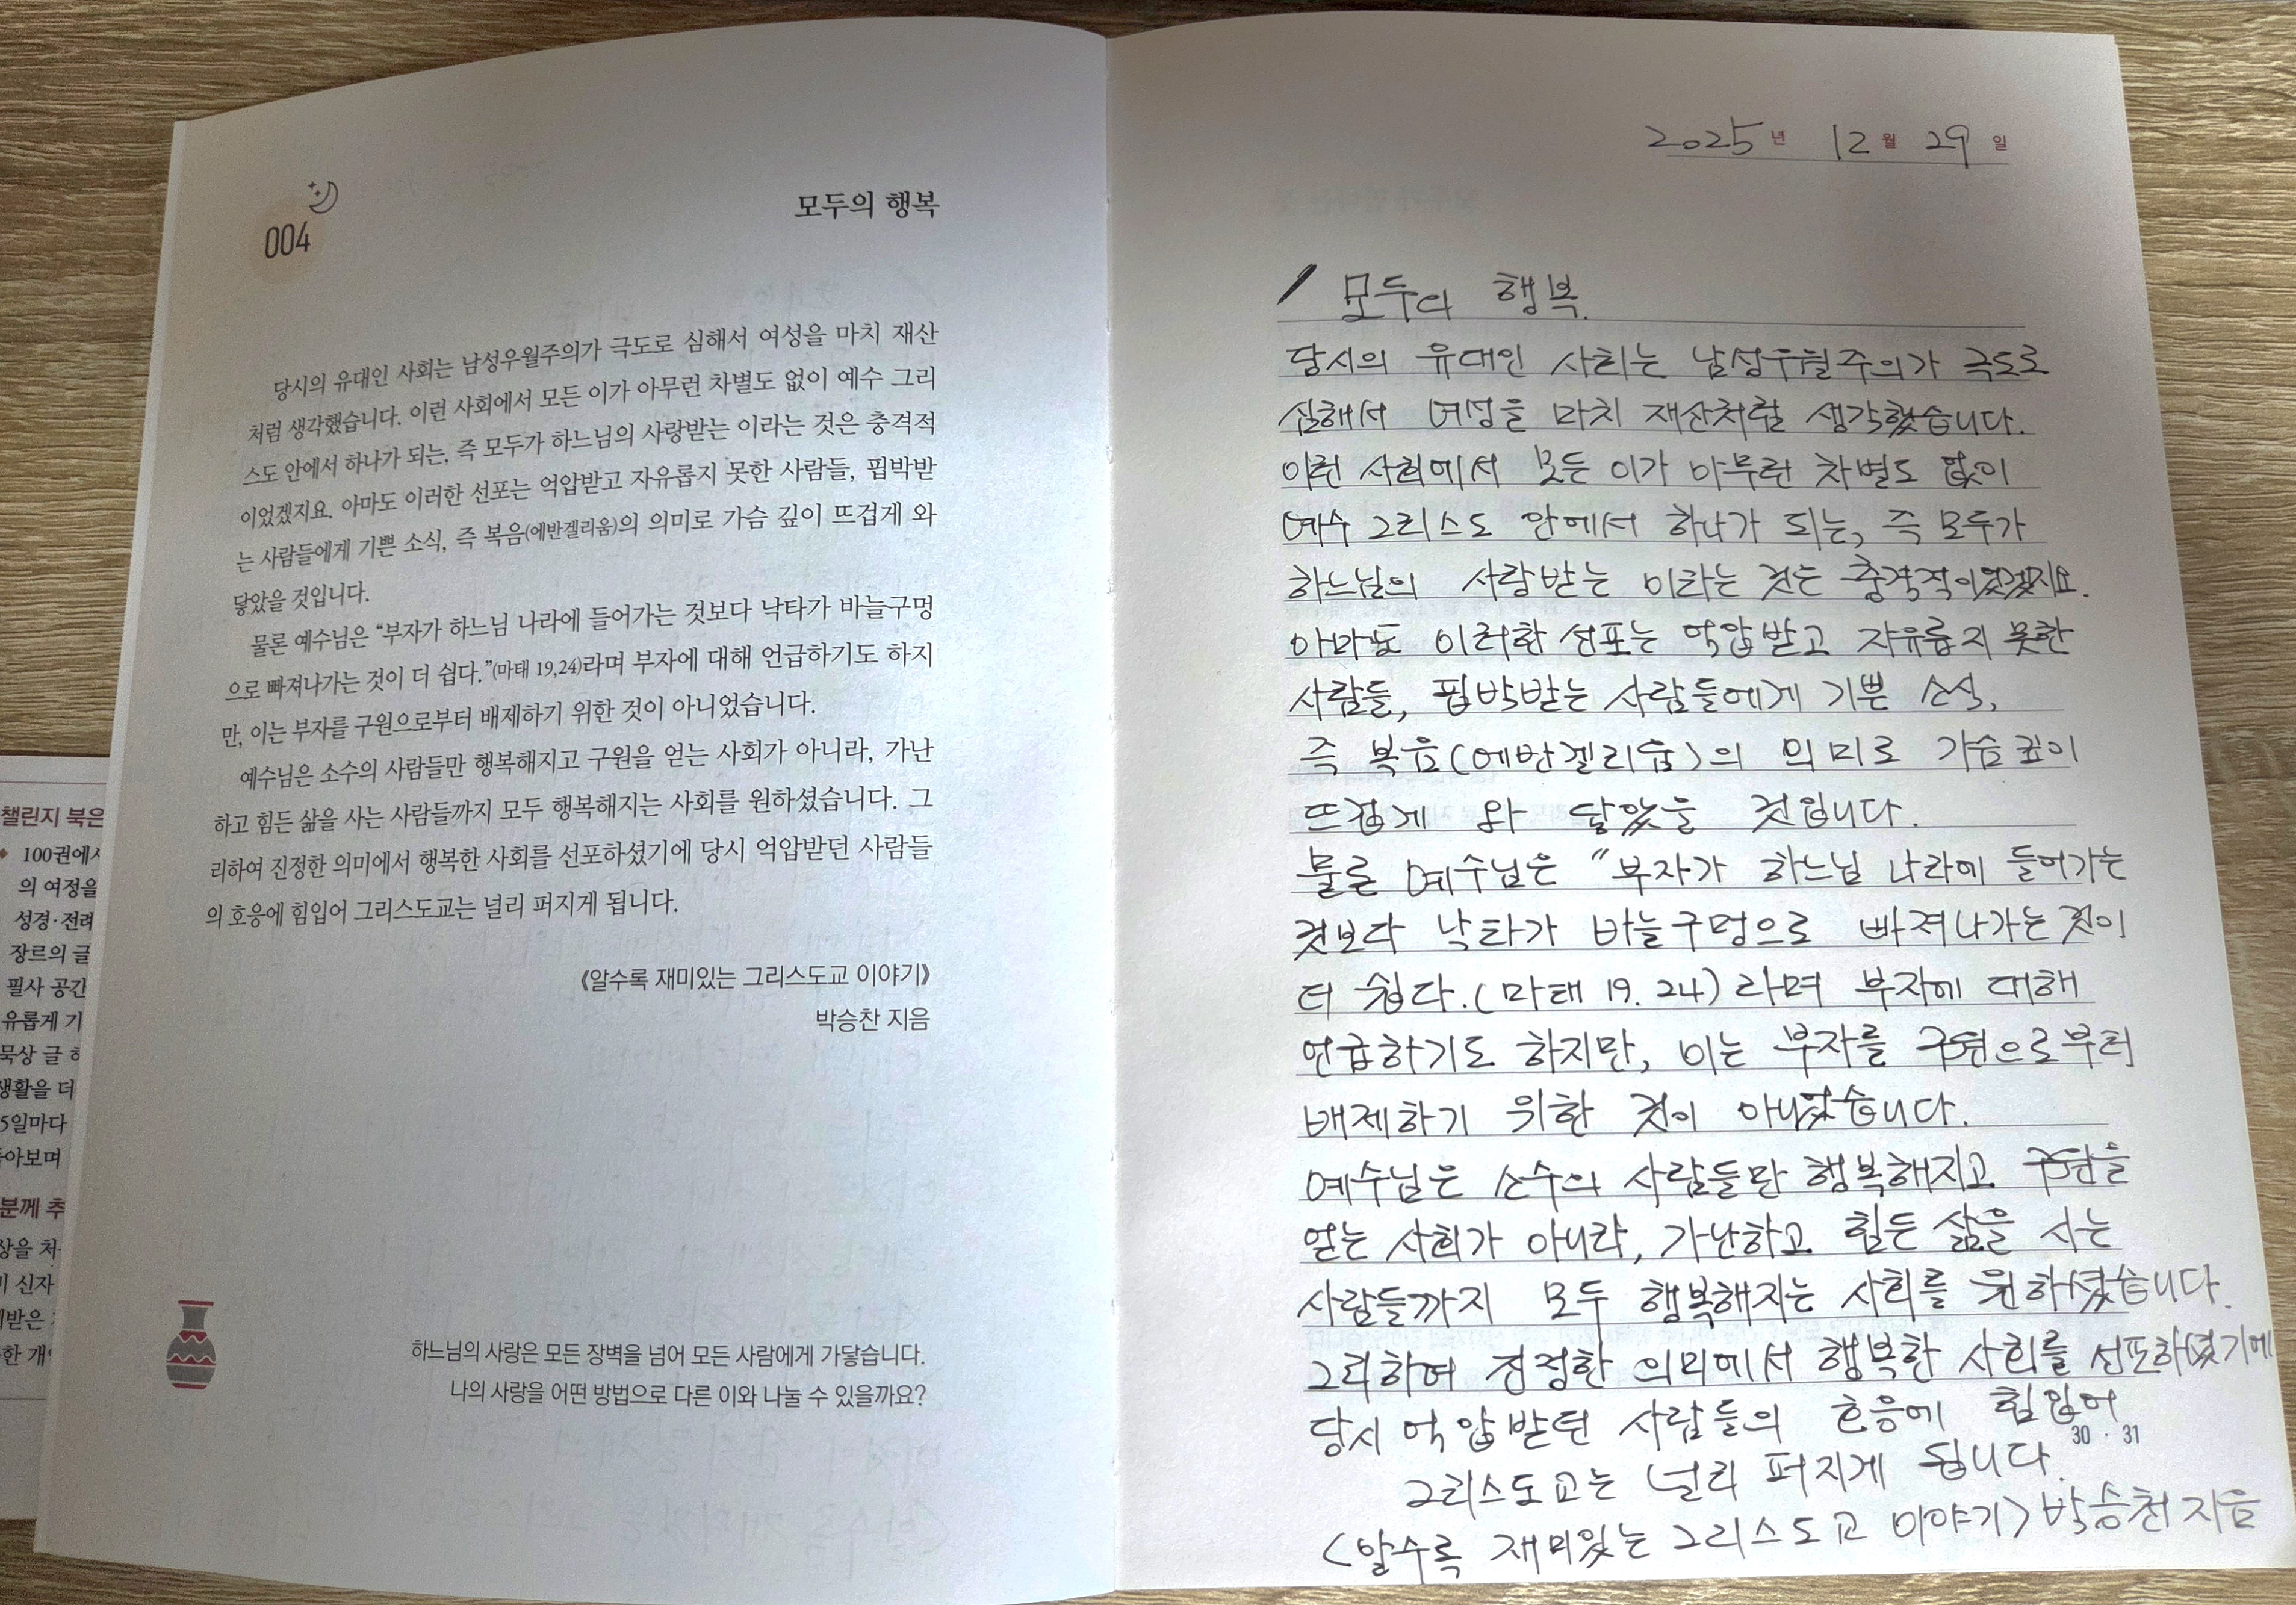 004
모두의 행복
당시의 유대인 사회는 남성우월주의가 극도로 심해서 여성을 마치 재산
처럼 생각했습니다. 이런 사회에서 모든 이가 아무런 차별도 없이 예수 그리
스도 안에서 하나가 되는, 즉 모두가 하느님의 사랑받는 이라는 것은 충격적
이었겠지요. 아마도 이러한 선포는 억압받고 자유롭지 못한 사람들, 핍박받
는 사람들에게 기쁜 소식, 즉 복음(에반겔리움)의 의미로 가슴 깊이 뜨겁게 와
닿았을 것입니다.
물론 예수님은 “부자가 하느님 나라에 들어가는 것보다 낙타가 바늘구멍
으로 빠져나가는 것이 더 쉽다.”(마태 19,24)라며 부자에 대해 언급하기도 하지
만, 이는 부자를 구원으로부터 배제하기 위한 것이 아니었습니다.
예수님은 소수의 사람들만 행복해지고 구원을 얻는 사회가 아니라, 가난
하고 힘든 삶을 사는 사람들까지 모두 행복해지는 사회를 원하셨습니다. 그
리하여 진정한 의미에서 행복한 사회를 선포하셨기에 당시 억압받던 사람들
의 호응에 힘입어 그리스도교는 널리 퍼지게 됩니다.
《알수록 재미있는 그리스도교 이야기》
박승찬 지음
하느님의 사랑은 모든 장벽을 넘어 모든 사람에게 가닿습니다.
나의 사랑을 어떤 방법으로 다른 이와 나눌 수 있을까요?
챌린지 북은
100권에서
의 여정을
성경·전례
장르의 글
필사 공간
유롭게 기
묵상 글 하
생활을 더
5일마다
돌아보며
분께 추
상을 처
비 신자
한 개
2025년 12월 29일
모두의 행복.
당시의 유대인 사회는 남성우월주의가 극도로
심해서 여성을 마치 재산처럼 생각했습니다.
이런 사회에서 모든 이가 아무런 차별도 없이
예수 그리스도 안에서 하나가 되는, 즉 모두가
하느님의 사랑받는 이라는 것은 충격적이었겠지요.
아마도 이러한 선포는 억압받고 자유롭지 못한
사람들, 핍박받는 사람들에게 기쁜 소식,
즉 복음(에반겔리움)의 의미로 가슴 깊이
뜨겁게 와 닿았을 것입니다.
물론 예수님은 “부자가 하느님 나라에 들어가는
것보다 낙타가 바늘구멍으로 빠져나가는 것이
더 쉽다.(마태 19. 24)라며 부자에 대해
언급하기도 하지만, 이는 부자를 구원으로부터
배제하기 위한 것이 아니었습니다.
예수님은 소수의 사람들만 행복해지고 구원을
얻는 사회가 아니라, 가난하고 힘든 삶을 사는
사람들까지 모두 행복해지는 사회를 원하셨습니다.
그리하여 진정한 의미에서 행복한 사회를 선포하셨기에
당시 억압받던 사람들의 호응에 힘입어
30 · 31
그리스도교는 널리 퍼지게 됩니다.
<알수록 재미있는 그리스도교 이야기> 박승천 지음